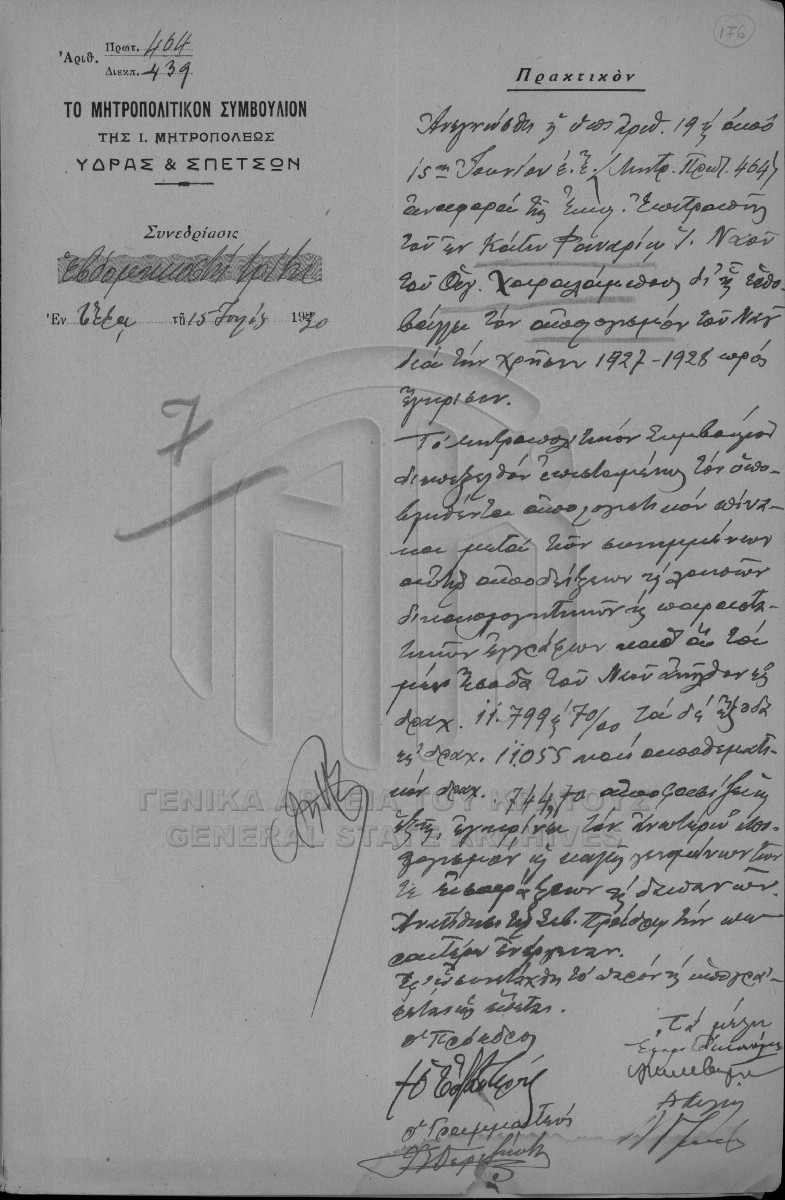 176
Ἀριθ. Πρωτ. 464
Διεκπ. 439
ΤΟ ΜΗΤΡΟΠΟΛΙΤΙΚΟΝ ΣΥΜΒΟΥΛΙΟΝ
ΤΗΣ Ι. ΜΗΤΡΟΠΟΛΕΩΣ
ΥΔΡΑΣ & ΣΠΕΤΣΩΝ
Συνεδρίασις
ἑβδομηκοστή τρίτη
Ἐν Ὕδρᾳ τῇ 15 192
7
Πρακτικὸν
Ἀνεγνώσθη ἡ ὑπ' ἀριθ. 19 ἀπὸ
15 Ἰουνίου ἐ. ἔ. (Μητρ. Πρωτ. 464)
ἀναφορὰ τῆς Ἐκκλ. Ἐπιτροπῆς
τοῦ ἐν Κάτω Φαναρίῳ Ἱ. Ναοῦ
τοῦ Ἁγ. Χαραλάμπους δι' ἧς ὑπο-
βάλλει τὸν ἀπολογισμὸν τοῦ Ναοῦ
διὰ τὴν χρῆσιν 1927-1928 πρὸς
ἔγκρισιν.
Τὸ Μητροπολιτικὸν Συμβούλιον
διεξελθὸν ἐπισταμένως τὸν ὑπο-
βληθέντα ἀπολογιστικὸν πίνα-
κα μετὰ τῶν συνημμένων
αὐτῷ ἀποδείξεων καὶ λοιπῶν
δικαιολογητικῶν καὶ παραστα-
τικῶν ἐγγράφων καθ' ἃ τὰ
μὲν ἔσοδα τοῦ Ναοῦ ἀνῆλθον εἰς
δραχ. 11.799 καὶ 70/00 τὰ δὲ ἔξοδα
εἰς δραχ. 11055 καὶ ἀποθεματι-
κὸν δραχ. 744,70 ἀποφασίζει
ἐγκρίνει τὸν ἀνωτέρω ἀπο-
λογισμὸν ὡς καλῶς γενομένων τῶν
τε εἰσπράξεων καὶ δαπανῶν.
Ἀνατίθησι τῷ Σεβ. Προέδρῳ τὴν πε-
ραιτέρω ἐνέργειαν.
Ἐφ' ᾧ συνετάχθη τὸ παρὸν καὶ ὑπογρά-
φεται ὡς ἕπεται.
Ὁ Πρόεδρος
Τὰ μέλη
Ὁ Γραμματεύς
ΓΕΝΙΚΑ ΑΡΧΕΙΑ ΤΟΥ ΚΡΑΤΟΥΣ
GENERAL STATE ARCHIVES